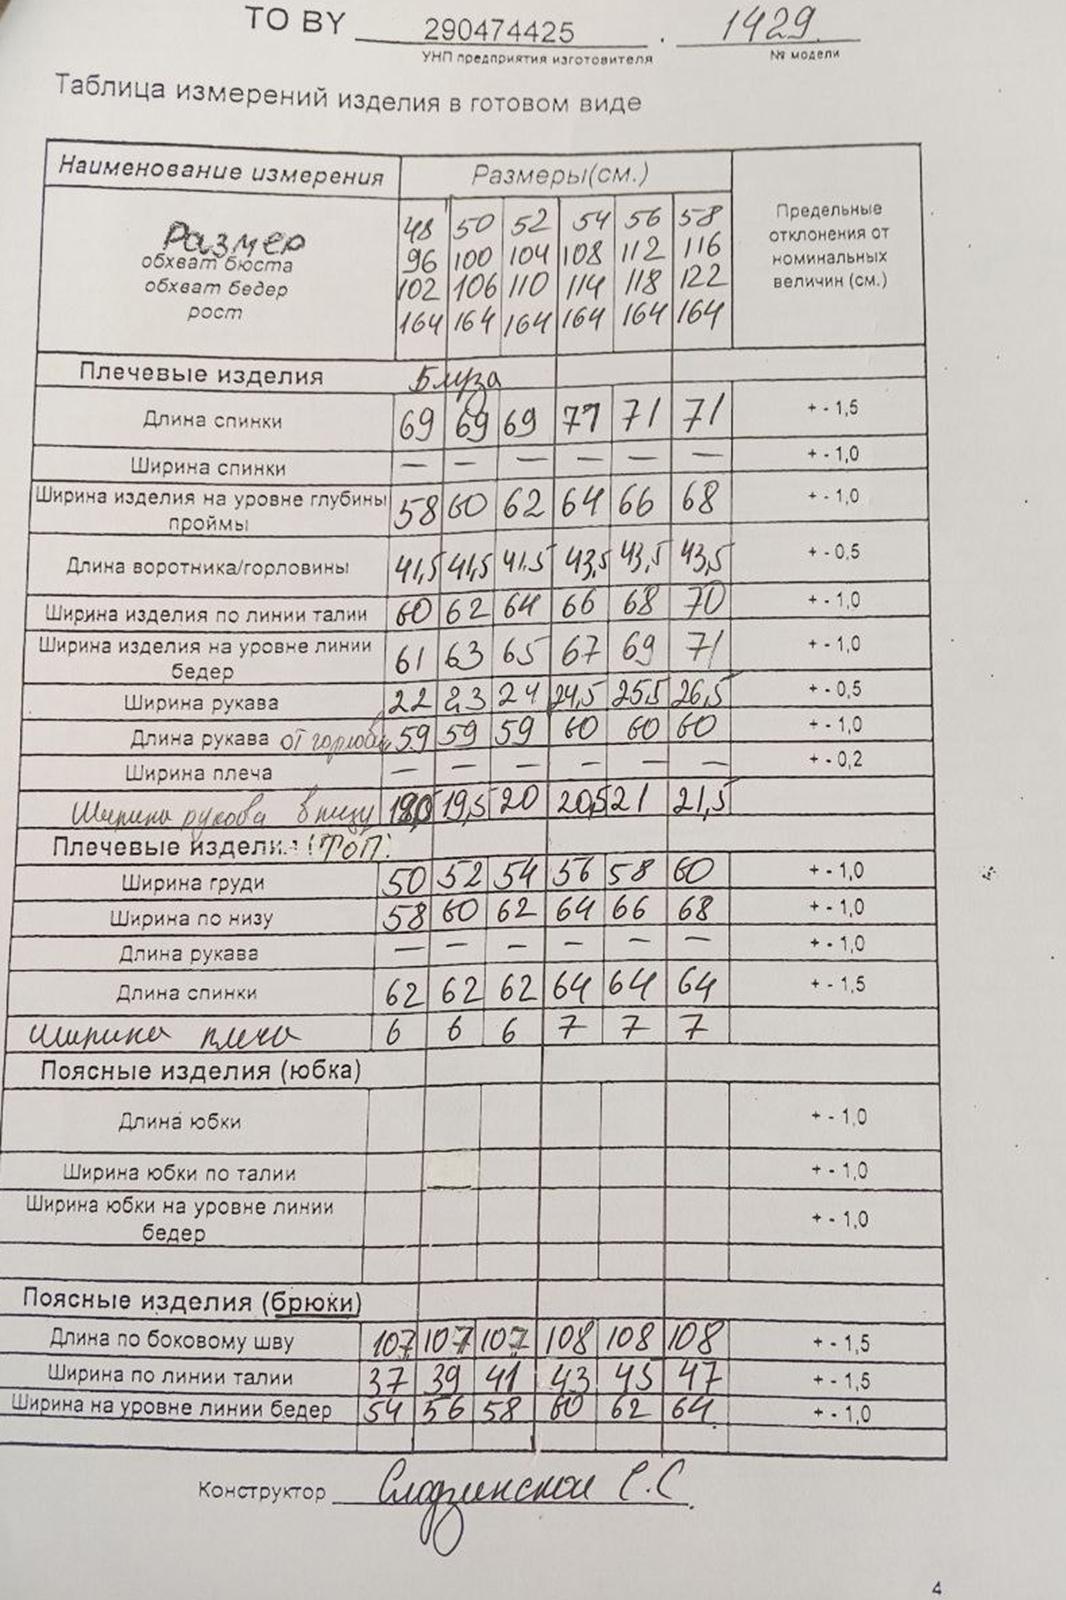 ТО BY 290474425 . 1429
УНП предприятия изготовителя № модели
Таблица измерений изделия в готовом виде
Наименование измерения Размеры(см.) Предельные отклонения от номинальных величин (см.)
Размер 48 50 52 54 56 58
обхват бюста 96 100 104 108 112 116
обхват бедер 102 106 110 114 118 122
рост 164 164 164 164 164 164
Плечевые изделия Блуза
Длина спинки 69 69 69 71 71 71 + - 1,5
Ширина спинки — — — — — — + - 1,0
Ширина изделия на уровне глубины проймы 58 60 62 64 66 68 + - 1,0
Длина воротника/горловины 41,5 41,5 41,5 43,5 43,5 43,5 + - 0,5
Ширина изделия по линии талии 60 62 64 66 68 70 + - 1,0
Ширина изделия на уровне линии бедер 61 63 65 67 69 71 + - 1,0
Ширина рукава 22 23 24 24,5 25,5 26,5 + - 0,5
Длина рукава от 59 59 59 60 60 60 + - 1,0
Ширина плеча — — — — — — + - 0,2
Ширина рукова внизу 19,5 20 20,5 21 21,5
Плечевые издели (топ)
Ширина груди 50 52 54 56 58 60 + - 1,0
Ширина по низу 58 60 62 64 66 68 + - 1,0
Длина рукава — — — — — — + - 1,0
Длина спинки 62 62 62 64 64 64 + - 1,5
Ширина плеча 6 6 6 7 7 7
Поясные изделия (юбка)
Длина юбки + - 1,0
Ширина юбки по талии + - 1,0
Ширина юбки на уровне линии бедер + - 1,0
Поясные изделия (брюки)
Длина по боковому шву 107 107 107 108 108 108 + - 1,5
Ширина по линии талии 37 39 41 43 45 47 + - 1,5
Ширина на уровне линии бедер 54 56 58 60 62 64 + - 1,0
Конструктор С.С
4